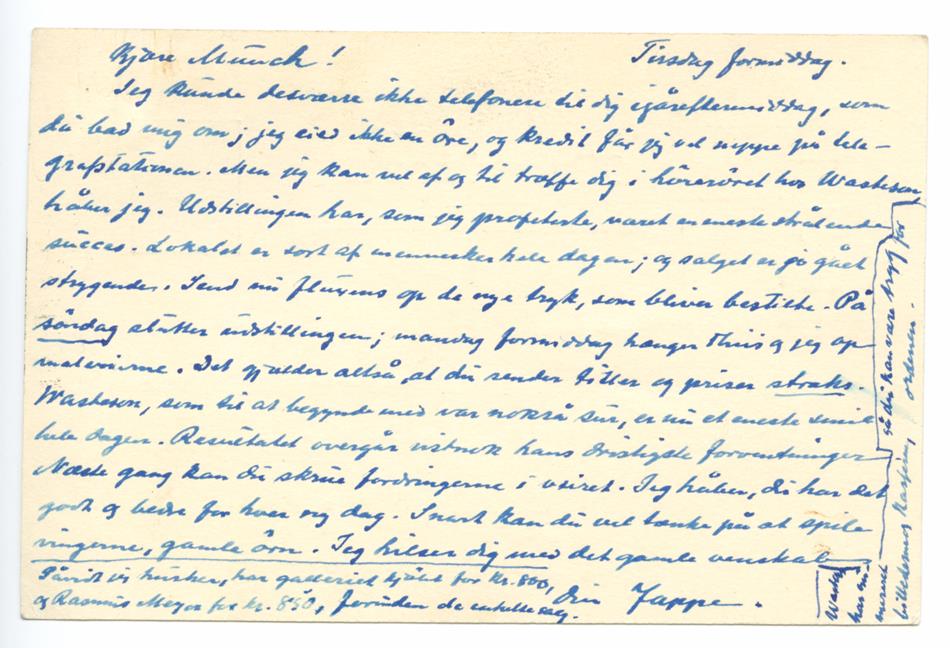 Kjære Munch!
Tirsdag formiddag.
Jeg kunde desværre ikke telefonere til dig igåreftermiddag, som
du bad mig om; jeg eied ikke en öre, og kredit får jeg vel neppe på tele-
grafstationen. Men jeg kan vel af og til træffe dig i höreröret hos Wasteson,
håber jeg. Udstillingen har, som jeg profeterte, været en eneste strålende
succes. Lokalet er sort af mennesker hele dagen; og salget er jo gået
strygende. Send nu fluxens op de nye tryk, som bliver bestilte. På
söndag slutter udstillingen; mandag formiddag hænger Thiis og jeg op
malerierne. Det gjælder altså, at du sender titler og priser straks.
Wasteson, som til at begynde med var nokså sur, er nu et eneste smil
hele dagen. Resultatet overgår vistnok hans dristigste forventninger
Næste gang kan du skrue fordringerne i veiret. Jeg håber, du har det
godt og bedre for hver ny dag. Snart kan du vel tænke på at spile
vingerne, gamle örn. Jeg hilser dig med det gamle venskab
Såvidt jeg husker, har galleriet kjöbt for kr. 800,
og Rasmus Meyer for kr. 850, foruden de enkelte salg.
Din Jappe.
har nu
så du kan være tryg for
billedernes skjæbne,
ordenen.